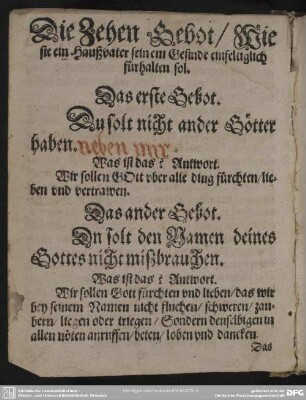 Die Zehen Gebot / Wie
sie ein Haußvater seinem Gesinde einfeltiglich
fürhalten sol.
Das erste Gebot.
Du solt nicht ander Götter
haben. neben mir.
Was ist das? Antwort.
Wir sollen GOtt vber alle ding fürchten / lie-
ben vnd vertrawen.
Das ander Gebot.
Du solt den Namen deines
Gottes nicht mißbrauchen.
Was ist das? Antwort.
Wir sollen Gott fürchten vnd lieben / das wir
bey seinem Namen nicht fluchen / schweren / zau-
bern / liegen oder triegen / Sondern denselbigen in
allen nöten anruffen / beten / loben vnd dancken.
Das